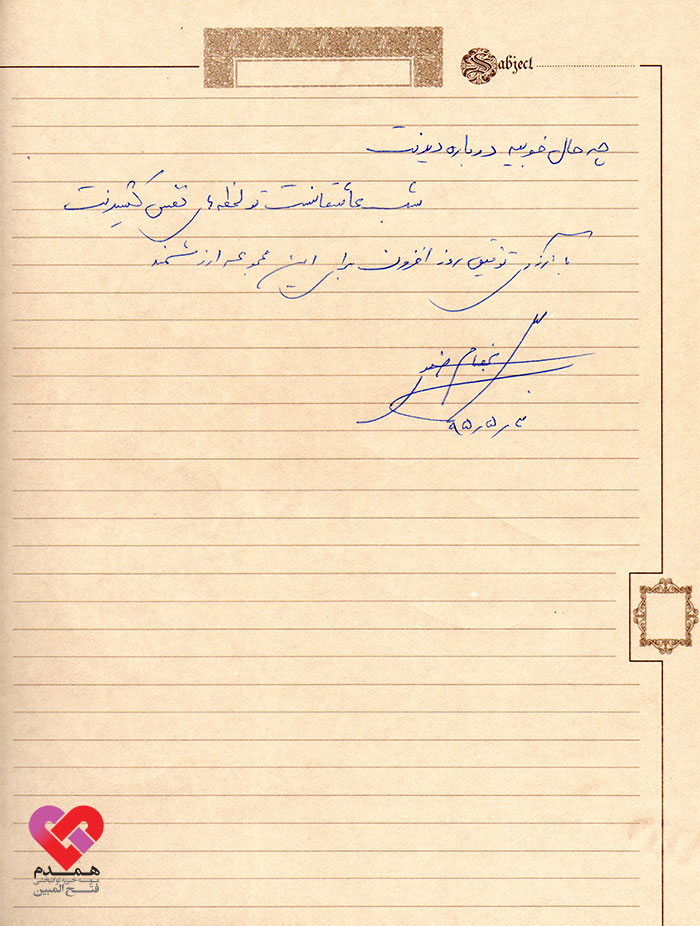 Subject
چه حال خوبیه دوباره دیدنت
شب عاشقانست تو لحظه‌های نفس کشیدنت
با آرزوی توفیق روز افزون برای این مجموعه ارزشمند
۹۵٫۵٫۳
همدم
موسسه خیریه توانبخشی
فتح المبین